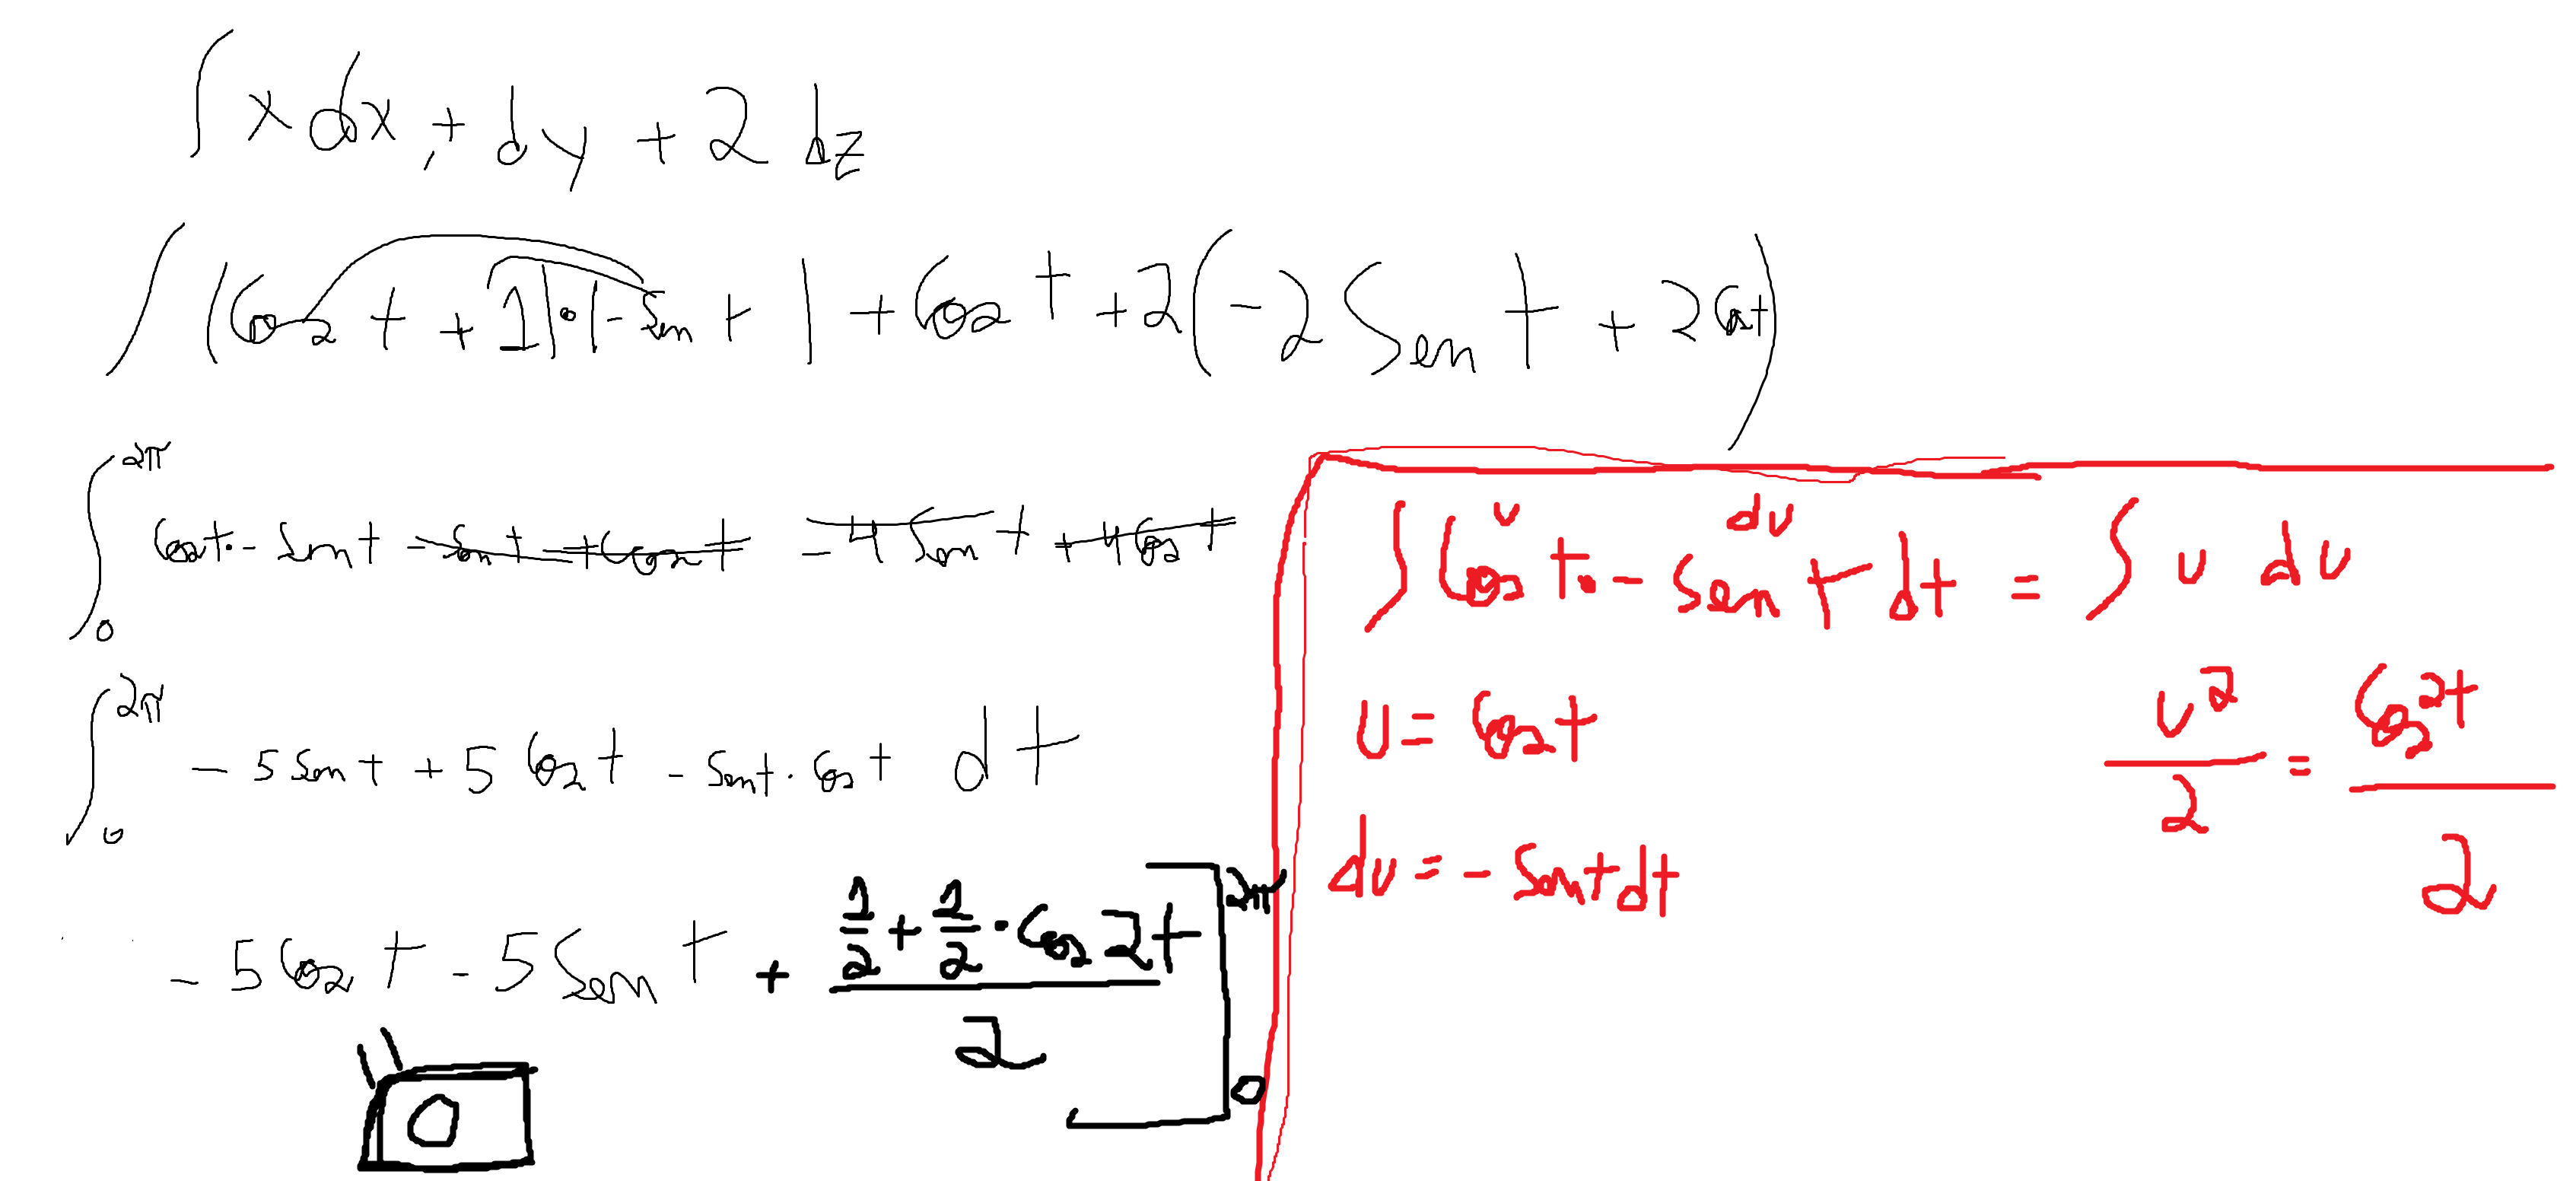 ∫ x dx, + dy + 2 dz
∫ (Cos t + 1) · (-Sen t) + Cos t + 2(-2 Sen t + 2 Cos t)
∫₀^2π Cos t · - Sen t - Sen t + Cos t - 4 Sen t + 4 Cos t
∫₀^2π - 5 Sen t + 5 Cos t - Sen t · Cos t dt
- 5 Cos t - 5 Sen t + (1/2 + 1/2 · Cos 2t)/2 ]₀^2π
0
u du
∫ Cos t · - Sen t dt = ∫ u du
u = Cos t
u²/2 = Cos² t/2
du = - Sen t dt